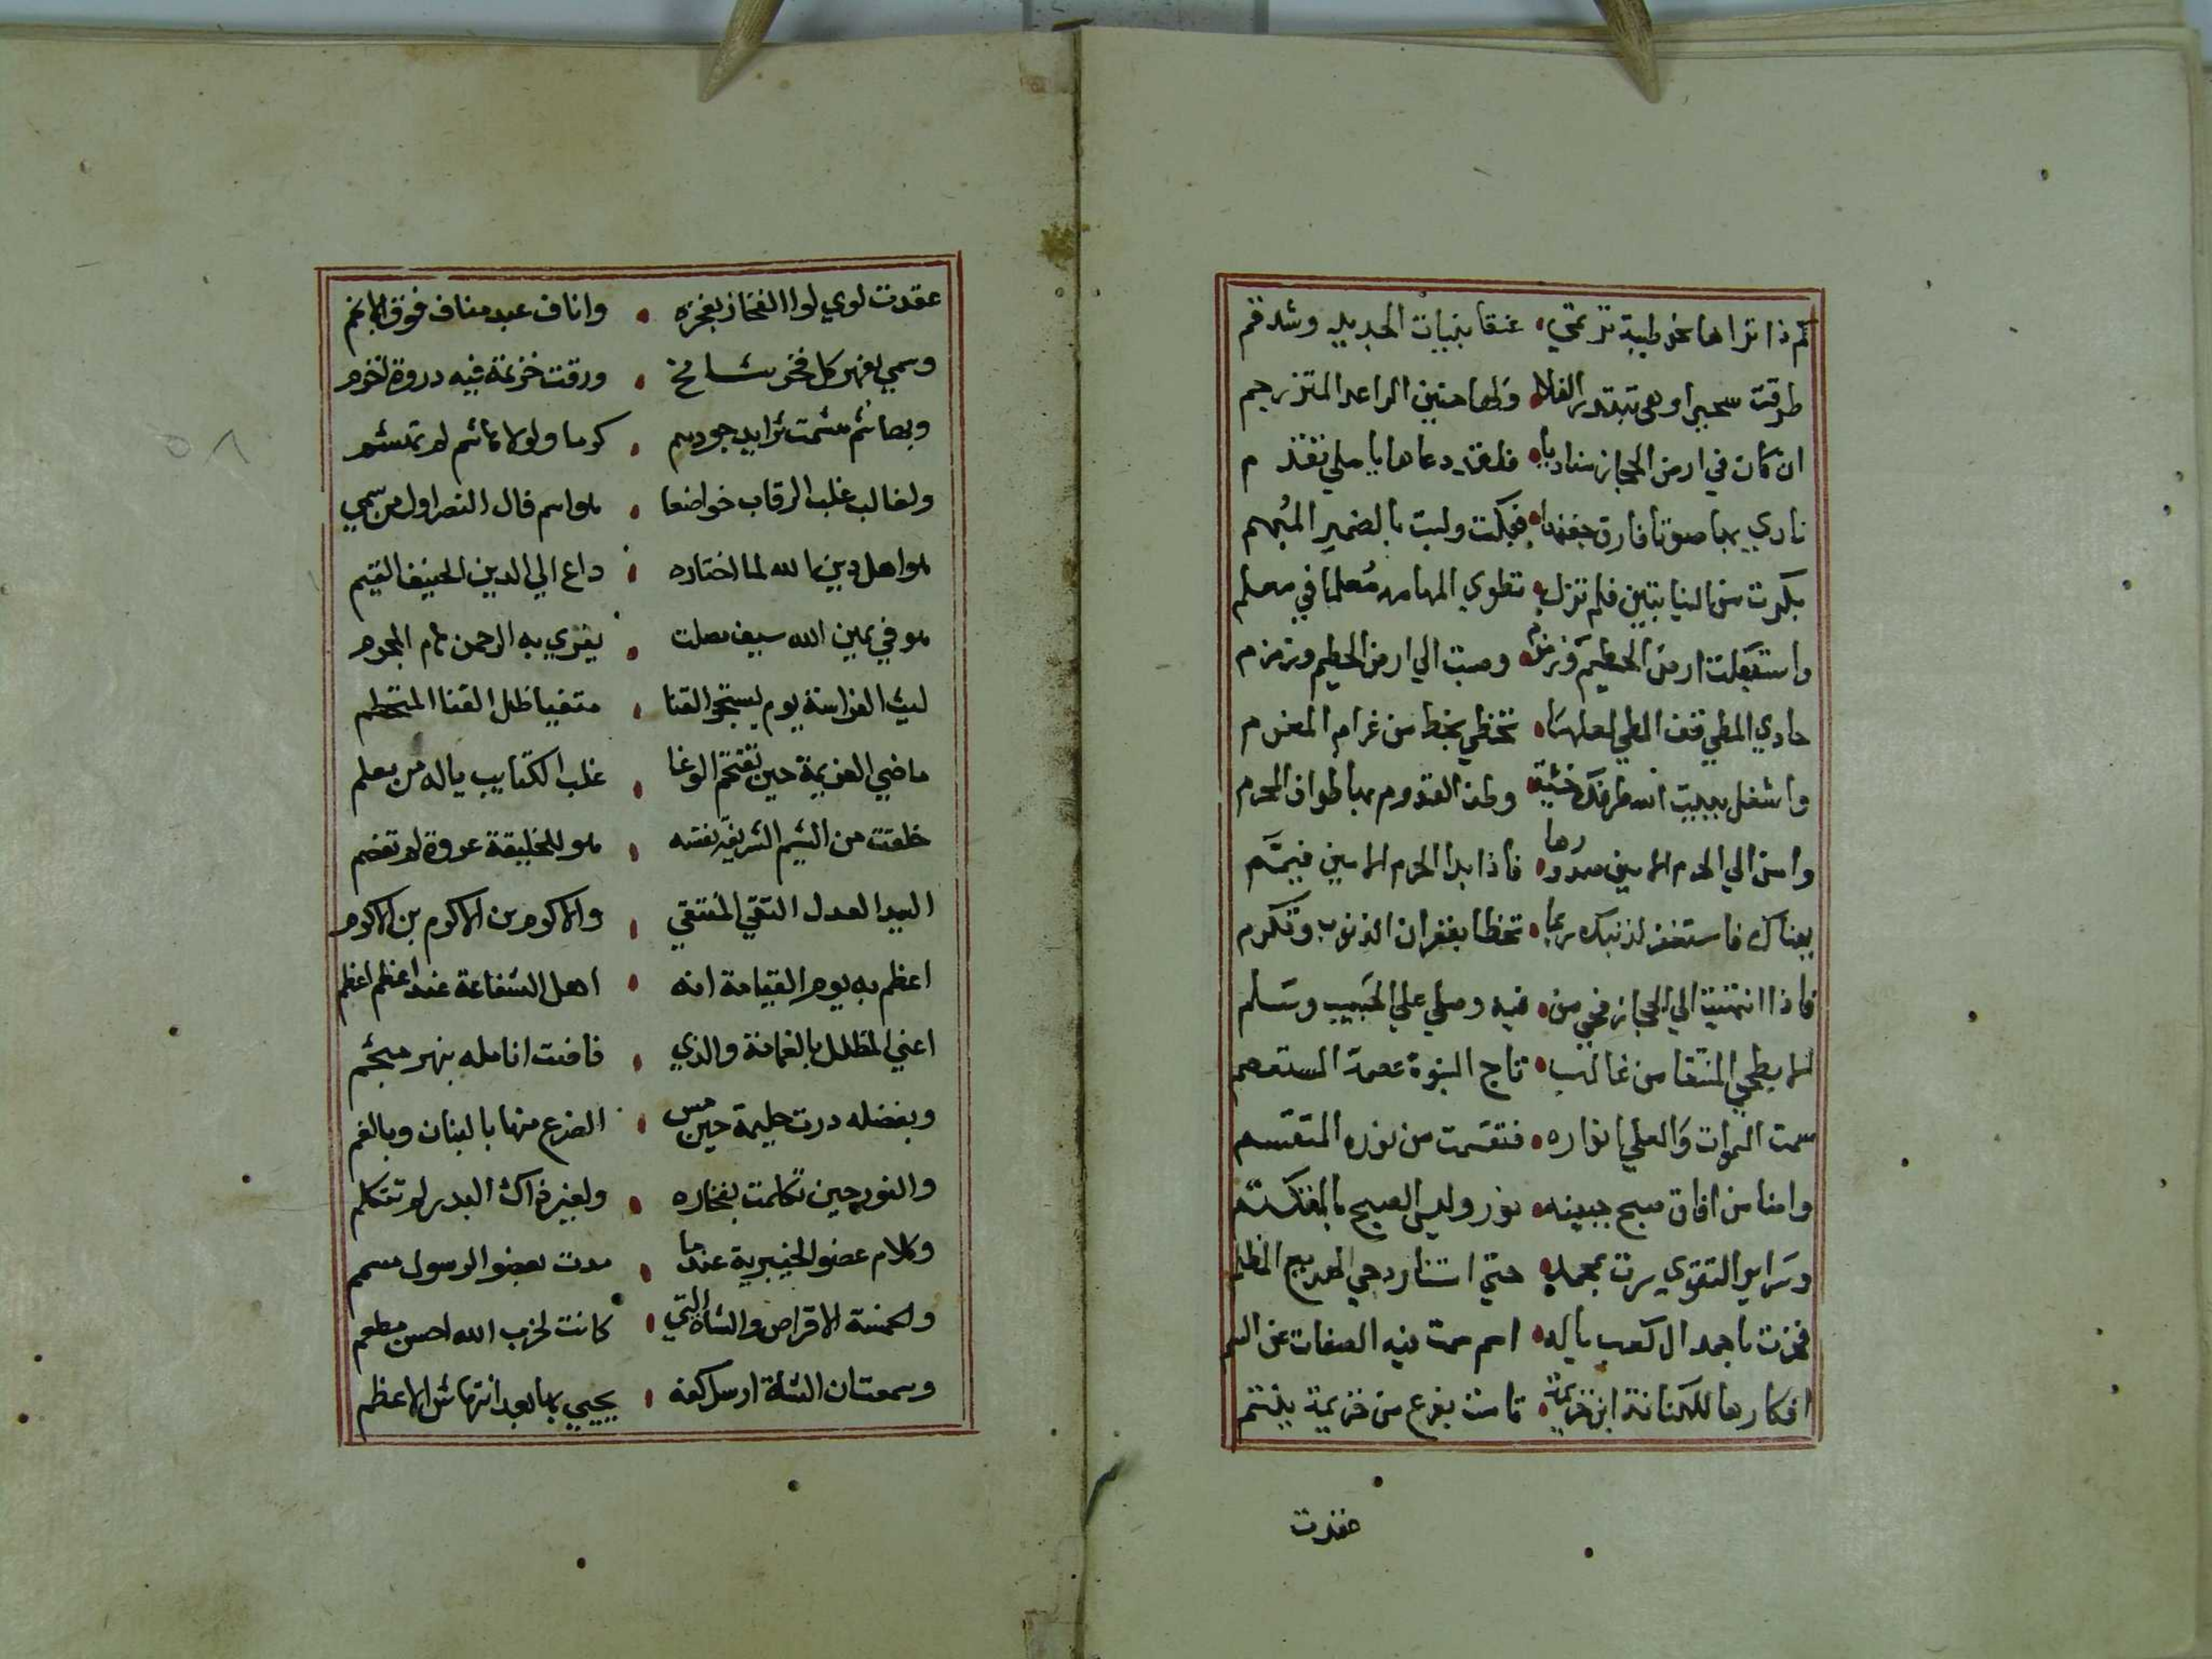 كم ذا تراها نحو طيبة ترتمي • عنقا بنيات الجديل وشدقم
طرقت سحيرا وهي تبتدر الفلا • ولها حنين الراعد المتزرجم
ان كان في ارض الحجاز مناديا • فلقد دعاها يا ملي تقدم
نادي بها صوتا فارق جفنها • فبكت ولبت بالضمير المبهم
بكرت من النيابتين فلم تزل • تطوي المهامه معلما في معلم
واستقبلت ارض الحطيم وزمزم • وصبت الي ارض الحطيم وزمزم
حادي المطي قف المطي لعلها • تحظي بخط من غرام المغرم
واشغل ببيت الله طرفك خشية • وطف القدوم بها طواف المحرم
وامن الي الحرم الامين صدورها • فاذا بدا الحرم الامين فيمم
بهناك فاستغفر لذنبك ربما • تحظا بغفران الذنوب وتكرم
فاذا انتهيت الي الحجاز فحي من • فيه وصلي علي الحبيب وسلم
الابطحي المنتقا من غالب • تاج النبوة عصمة المستعصم
سمت السموات والعلي انواره • فتقسمت من نوره المتقسم
واضا من افاق صبح جبينه • نور وليس الصبح بالمتكتم
وسراير التقوي سرت بمحمد • حتي استنار دجي البهيم المظلم
فخرت باحمد ال كعب ياله • اسم سمت فيه الصفات عن السم
افكارها لكنانة ابن خزيمة • قامت بفرع من خزيمة ينتم
عقدت
عقدت لوي لوا الفخار بفخره • واناف عبد مناف فوق الانجم
وسمي بفهر كل فخر شامخ • ورقت خزيمة فيه دروة اخزم
وبهاشم هشمت ثرايد جودهم • كرما ولولا هاشم لم تهشم
ولغالب غلب الرقاب خواضعا • هو اسم فال النصر اول من سمي
هو اهل دين الله لما اختاره • داع الي الدين الحنيف القيم
هو في يمين الله سيف مصلت • يفري به الرحمن هام المجرم
ليث الفراسة يوم يستجر القنا • متفيا ظلل القنا المتحطم
ماضي العزيمة حين تقتحم الوغا • غلب الكتايب ياله من معلم
خلقت من الشيم الشريفة نفسه • هو للخليقة عروة لم تفصم
السيد العدل التقي المنتقي • والاكرم بن الاكرم بن الاكرم
اعظم به يوم القيامة انه • اهل الشفاعة عند اعظم اعظم
اعني المظلل بالغمامة والذي • فاضت انامله بنهر مثجم
وبفضله درت حليمة حين مس • الضرع منها بالبنان وبالفم
والنور حين تكلمت بفخاره • ولغير ذاك البدر لم تتكلم
وكلام عضو الخيبرية عندما • مدت بعضو الرسول مسمم
وكمنة الاقراص والشاة التي • كانت لحزب الله احسن مطعم
وسمعتان الشاة ارسل كفه • يحيي بها بعد انتهاش الاعظم
٥٨